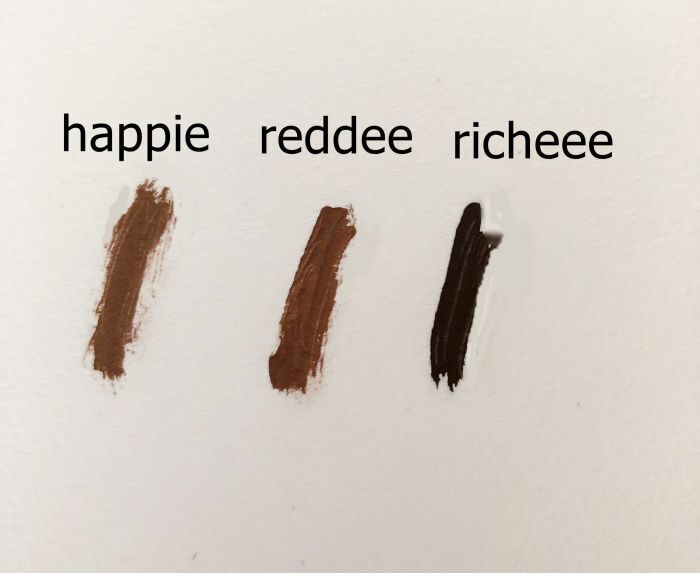 happie reddee richeee